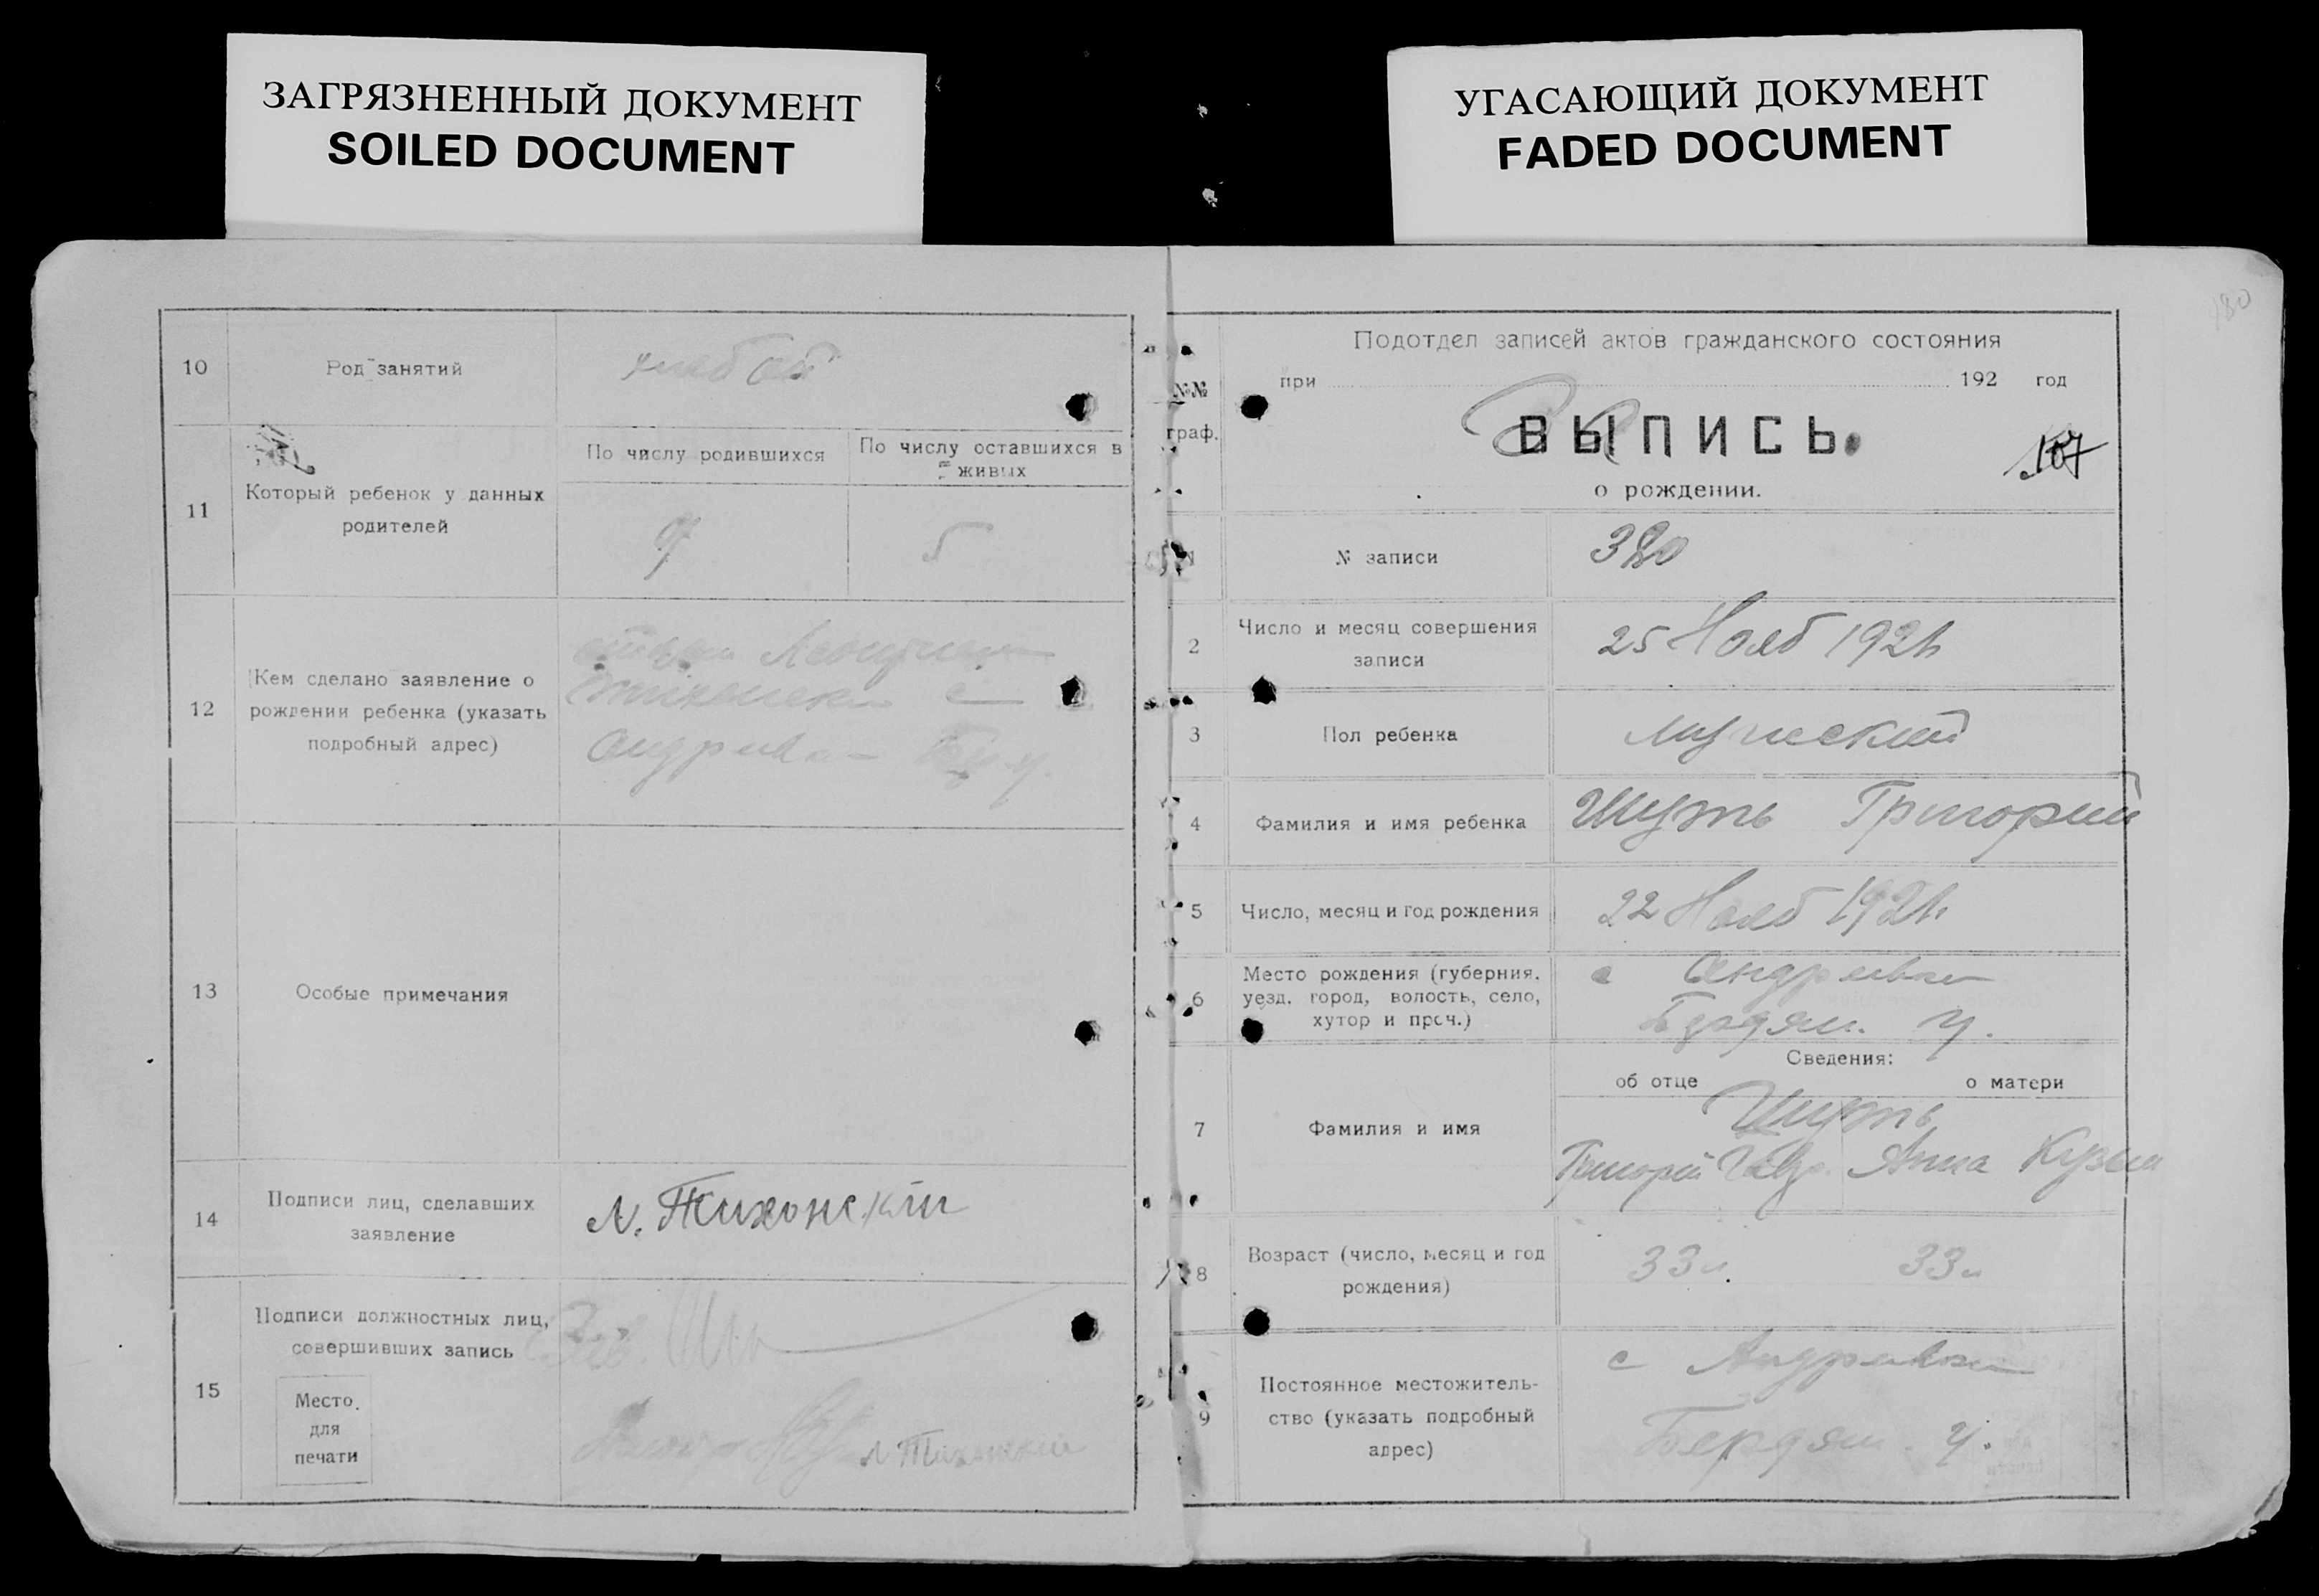 ЗАГРЯЗНЕННЫЙ ДОКУМЕНТ
SOILED DOCUMENT
УГАСАЮЩИЙ ДОКУМЕНТ
FADED DOCUMENT
10
Род занятий
11
Который ребенок у данных
родителей
По числу родившихся
По числу оставшихся в
живых
9
5
12
Кем сделано заявление о
рождении ребенка (указать
подробный адрес)
13
Особые примечания
14
Подписи лиц, сделавших
заявление
Л. Тихонский
15
Подписи должностных лиц,
совершивших запись
Место
для
печати
Зав.
Л Тихонский
180
Подотдел записей актов гражданского состояния
при 192 год
№№
граф.
ВЫПИСЬ
107
о рождении.
1
№ записи
380
2
Число и месяц совершения
записи
25 Нояб 1921
3
Пол ребенка
мужеский
4
Фамилия и имя ребенка
Шуть Григорий
5
Число, месяц и год рождения
22 Нояб 1921
6
Место рождения (губерния.
уезд. город, волость, село,
хутор и проч.)
с Андреевка
Бердян. у.
Сведения:
об отце
о матери
7
Фамилия и имя
Шуть
Григорий
Анна Кузьм
8
Возраст (число, месяц и год
рождения)
33
33
9
Постоянное местожитель-
ство (указать подробный
адрес)
с Андреевка
Бердян. у.